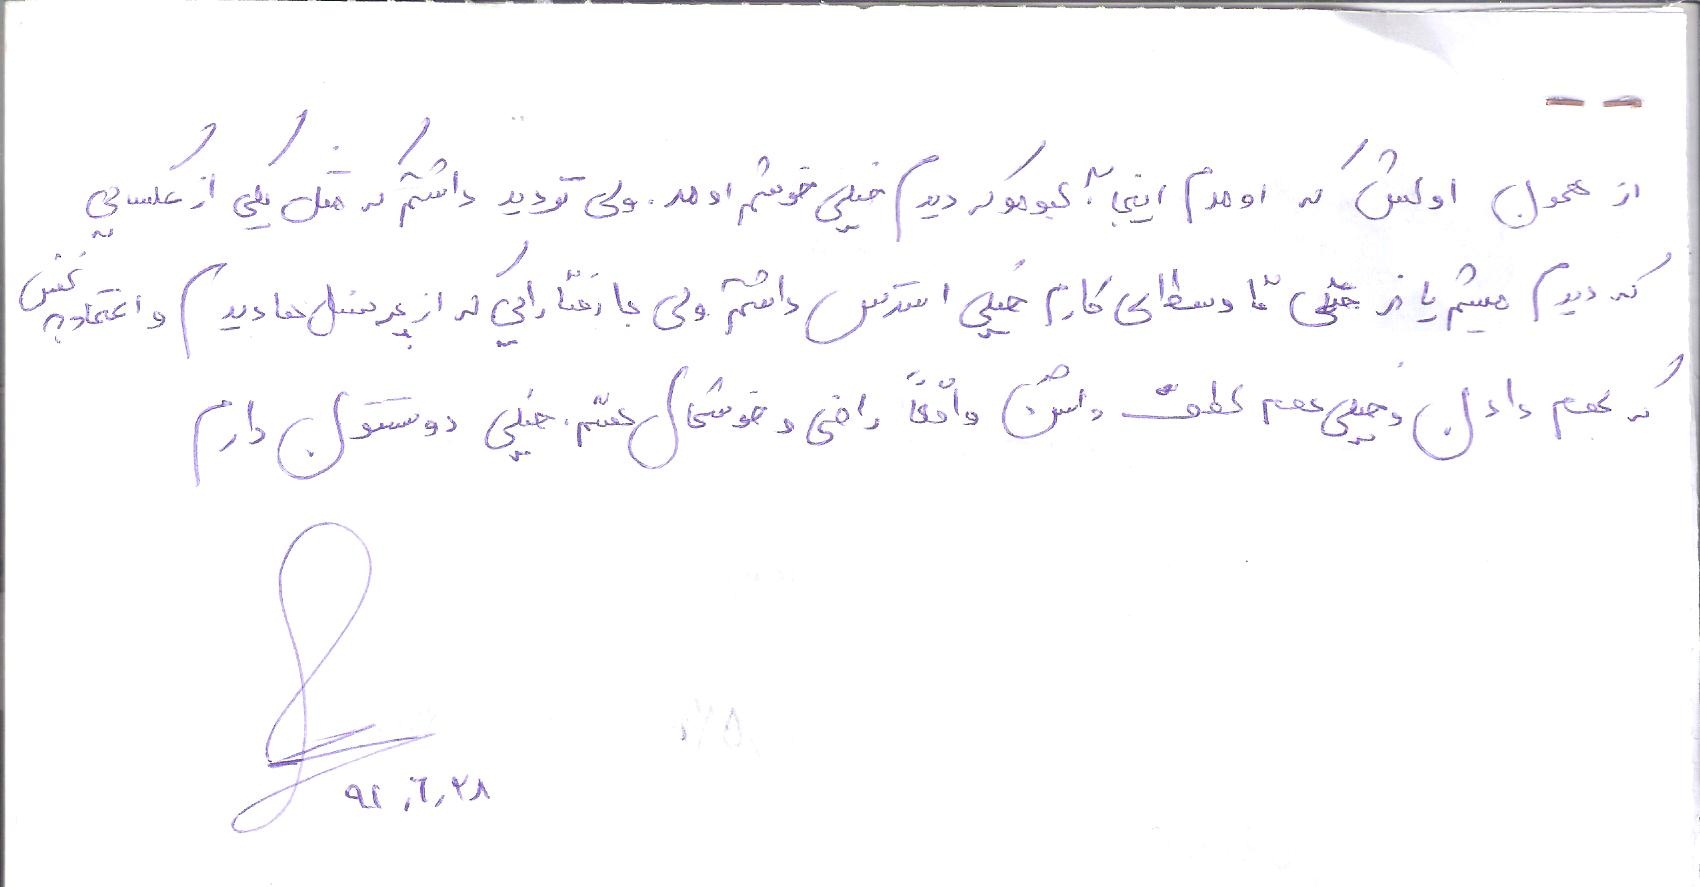 از همون اولش که اومدم اینجا، آلبومو که دیدم خیلی خوشم اومد. ولی تردید داشتم که مثل یکی از عکسایی
که دیدم میشم یا نه حتی تا وسطای کارم خیلی استرس داشتم ولی با رفتارایی که از پرسنل ها دیدم و اعتماد به نفسی
که بهم دادن و خیلی بهم لطف داشتن واقعاً راضی و خوشحال هستم. خیلی دوستتون دارم
۹۲,۶,۲۸